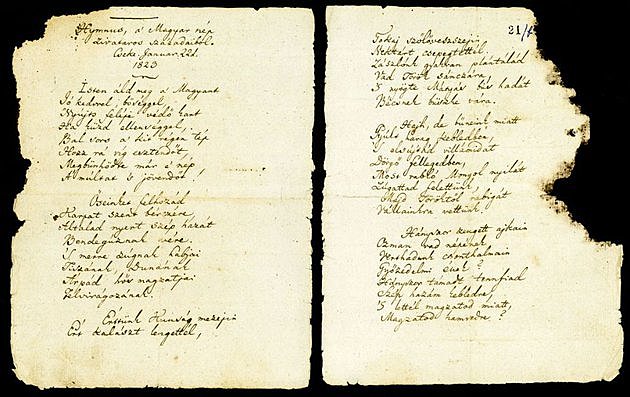 Hymnus, a Magyar nép
zivataros századaiból.
Cseke. Január 22d.
1823
Isten áld meg a Magyart
Jó kedvvel, bőséggel,
Nyújts feléje védő kart
Ha küzd ellenséggel,
Bal sors a kit régen tép
Hozz rá víg esztendőt
Megbűnhődte már e nép
A múltat s jövendőt!
Őseinket felhozád
Kárpát szent bérczére
Általad nyert szép hazát
Bendegúznak vére.
S merre zúgnak habjai
Tiszának, Dunának
Árpád hős magzatjai
Felvirágozának.
Értünk Kunság mezején
Ért kalászt lengettél,
21/1
Tokaj szőlővesszejin
Nektárt csepegtettél.
Zászlónk gyakran plántálád
Vad Török sánczára
S nyögte Mátyás bús hadát
Bécsnek büszke vára.
Hajh, de bűneink miatt
Gyúlt harag kebledben,
S elsújtád villámidat
Dörgő fellegedben,
Most rabló Mongol nyilát
Zúgattad felettünk,
Majd Töröktől rabigát
Vállainkra vettünk.
Hányszor zengett ajkain
Ozman vad népének
Vert hadunk csonthalmain
Győzedelmi ének?
Hányszor támadt tenfiad
Szép hazám kebledre,
S lettél magzatod miatt
Magzatod hamvedre?